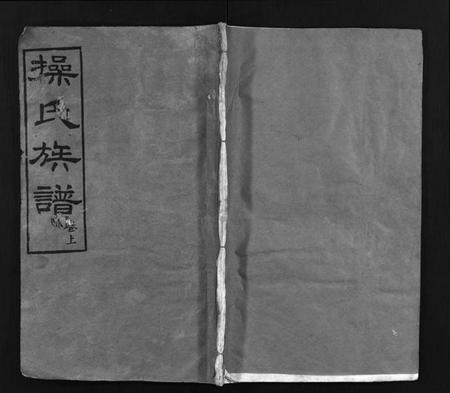 操氏族譜
卷上